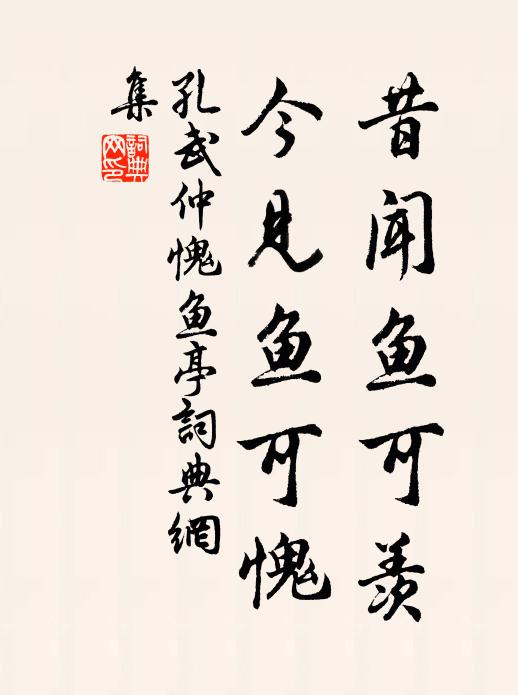 昔闻鱼可羡
今见鱼可愧
孔武仲愧鱼亭詞典網
集
詞典
网印